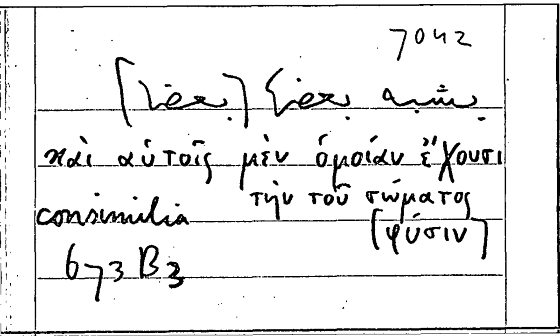 7042
καὶ αὐτοῖς μὲν ὁμοίαν ἔχουσι
τὴν τοῦ σώματος
consimilia
[φύσιν]
673 B3